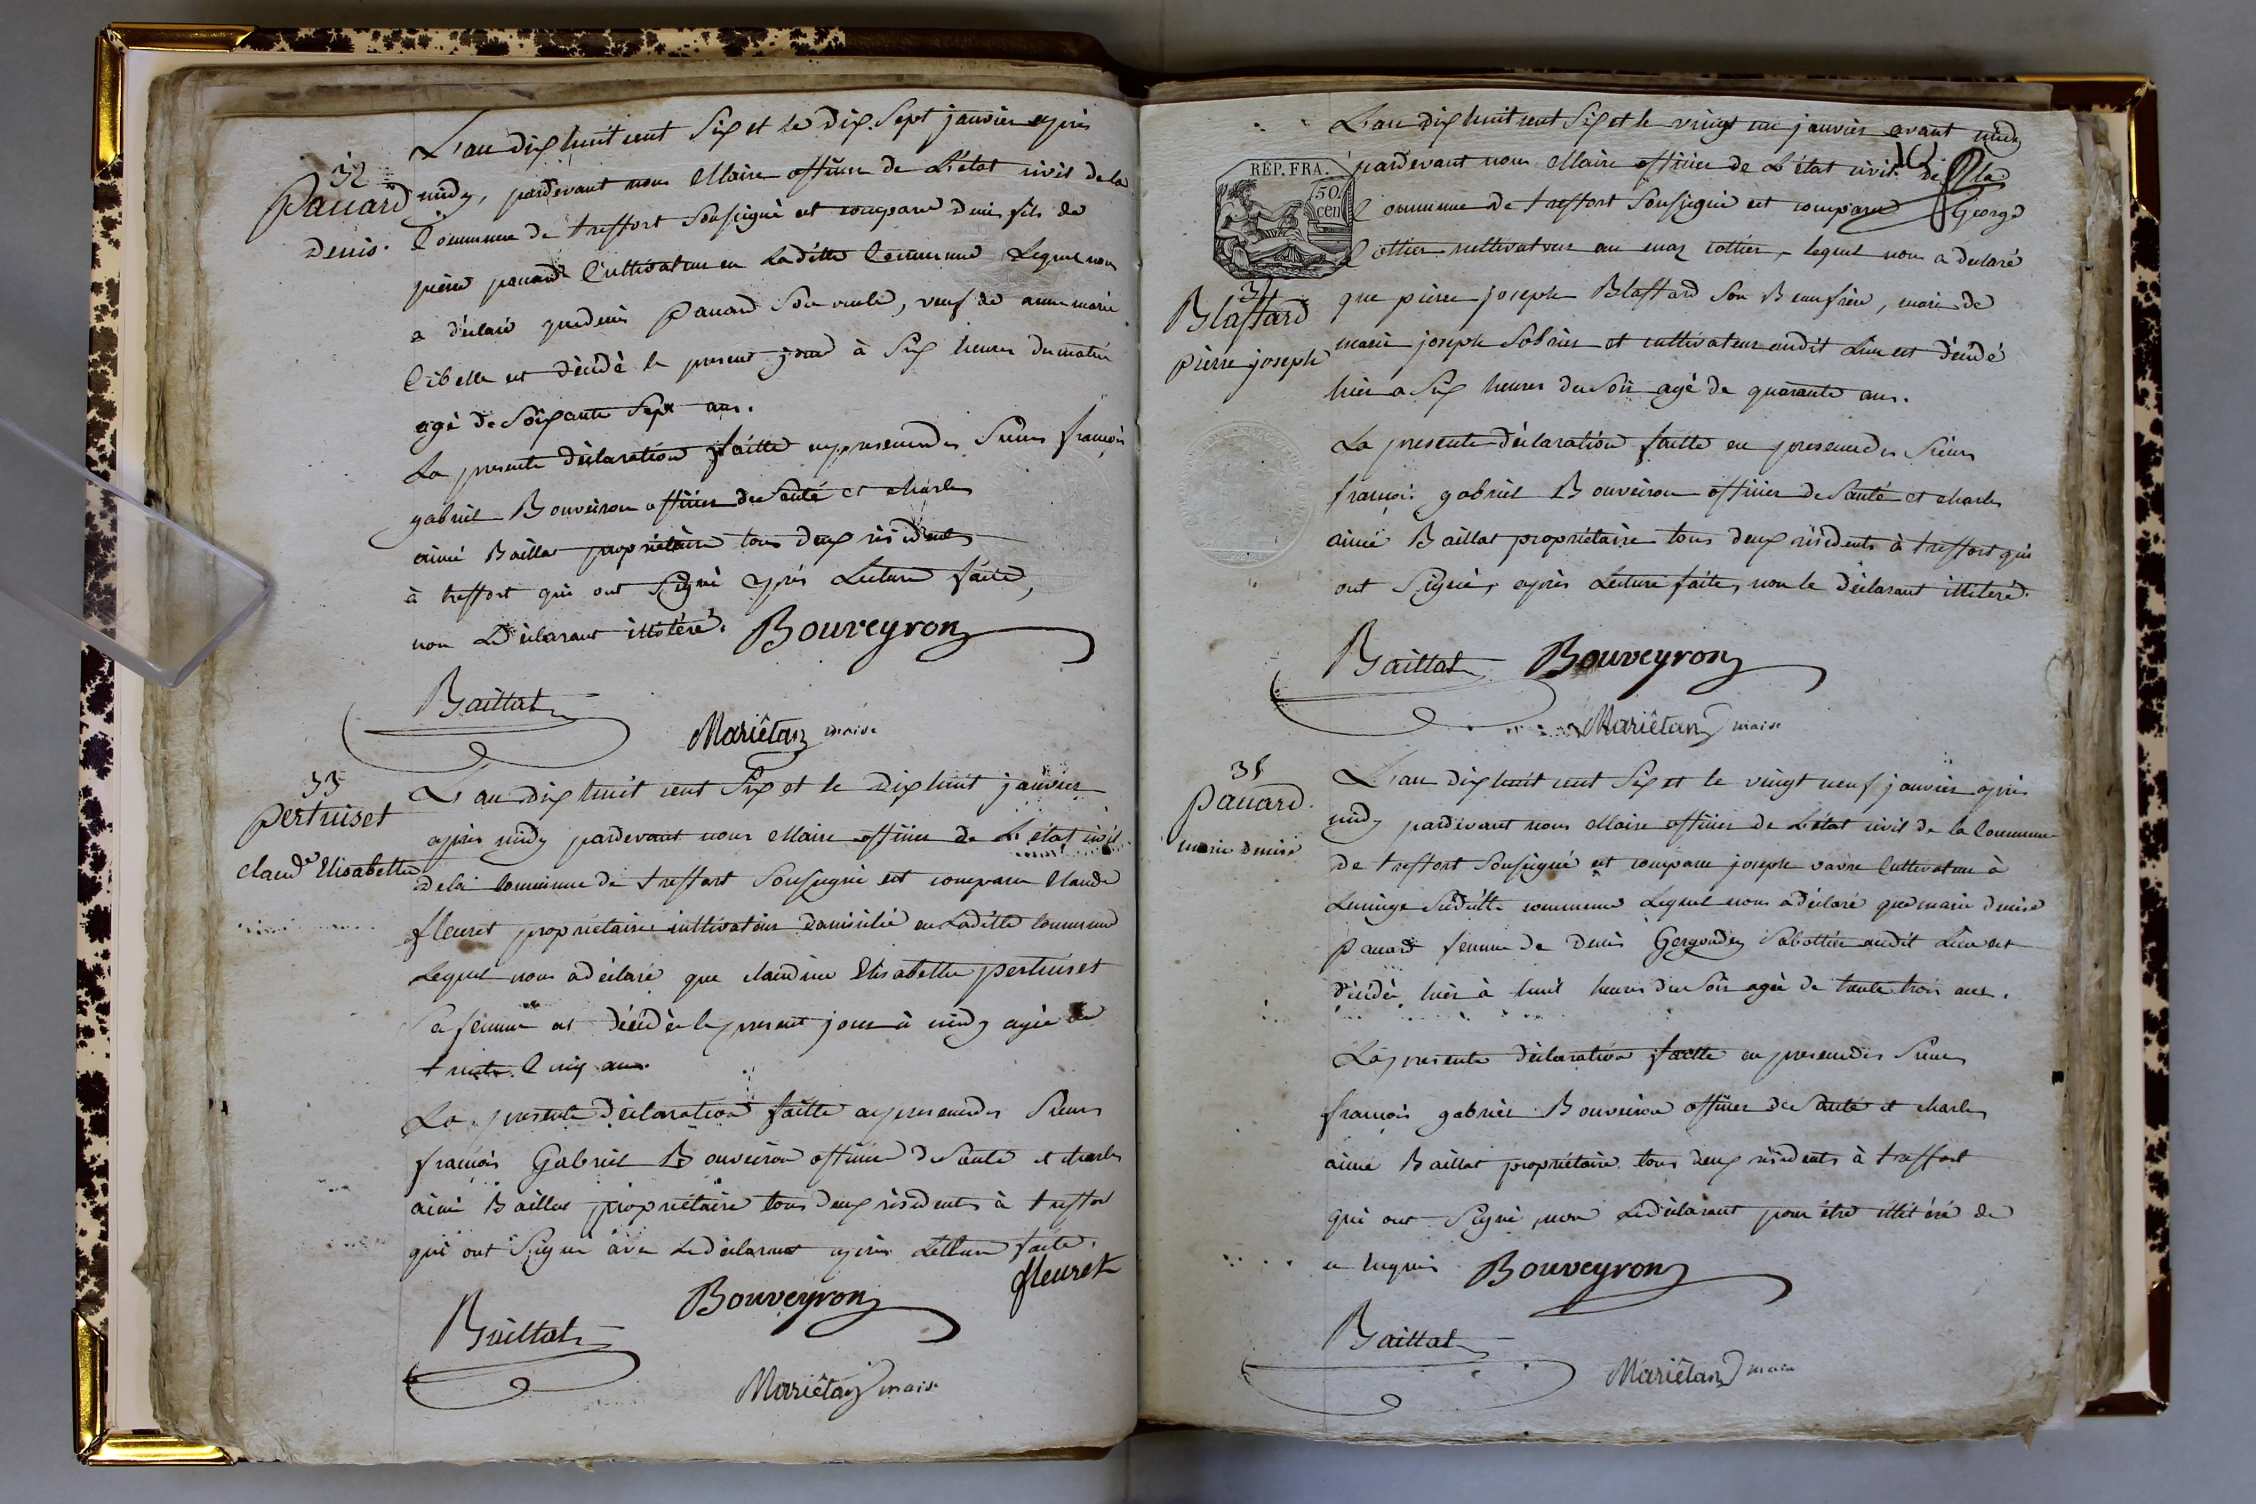 32
Pauard
denis.
L'an dix huit cent Six et le Dix Sept janvier après
midy, pardevant nous Maire officier de L'état civil de la
Commune de treffort Soussigné est comparu denis fils de
pierre pauard Cultivateur en Laditte Commune Lequel nous
a déclaré que denis pauard Son oncle, veuf de anne marie
Cibelle est décédé le present jour à Six heures du matin
agé de Soixante Sept ans.
La presente déclaration faitte en presence des Sieurs françois
gabriel Bouveiron officier de Santé et charles
aimé Baillat propriétaire tous deux résidents
à treffort qui ont Signé après Lecture faite,
non Déclarant illitéré. Bouveyron
Baillat
Mariêtan maire
33
Pertuiset
claud.e Elisabette
L'an Dix huit cent Six et le Dix huit janvier
après midy pardevant nous Maire officier de L'état civil
de la Commune de treffort Soussigné est comparu Claude
fleuret propriétaire cultivateur domicilié en Laditte Commune
Lequel nous a déclaré que claudine Elisabette pertuiset
Sa femme est décédée le present jour à midy agée de
trente Cinq ans.
La presente déclaration faitte en presence des Sieurs
françois Gabriel Bouveiron officier de Santé et charles
aimé Baillat propriétaire tous deux résidents à treffort
qui ont Signé avec Le déclarant après Lecture faite.
fleuret
Bouveyron
Baillat
Mariêtan maire
RÉP. FRA.
50
cen
L'an dix huit cent Six et le vingt un janvier avant midy
pardevant nous Maire officier de L'état civil de la
Commune de treffort Soussigné est comparu George
Cottier cultivateur au maz cottier, lequel nous a declaré
34
Blaffard
pierre joseph
que pierre joseph Blaffard Son Beaufrère, mari de
marie joseph Sobrier et cultivateur audit Lieu est décédé
hier a Six heures du Soir agé de quarante ans.
La presente déclaration faitte en presence des Sieurs
françois gabriel Bouveiron officier de Santé et charles
aimé Baillat propriétaire tous deux résidents à treffort qui
ont Signé, après Lecture faite, non le déclarant illitéré.
Baillat Bouveyron
Mariêtan maire
35
Pauard.
marie denise
L'an dix huit cent Six et le vingt neuf janvier après
midy pardevant nous Maire officier de L'état civil de la Commune
de treffort Soussigné est comparu joseph vavre Cultivateur à
Lucinge Suditte commune Lequel nous a déclaré que marie denise
Pauard femme de Denis Gergondey Sabottier audit Lieu est
décédée hier à huit heures du Soir agée de trente trois ans.
La presente déclaration faitte en presence des Sieurs
françois gabriel Bouveiron officier de Santé et charles
aimé Baillat propriétaire tous deux résidents à treffort
qui ont Signé, non Le déclarant pour être illitéré de
ce enquis Bouveyron
Baillat
Mariêtan maire